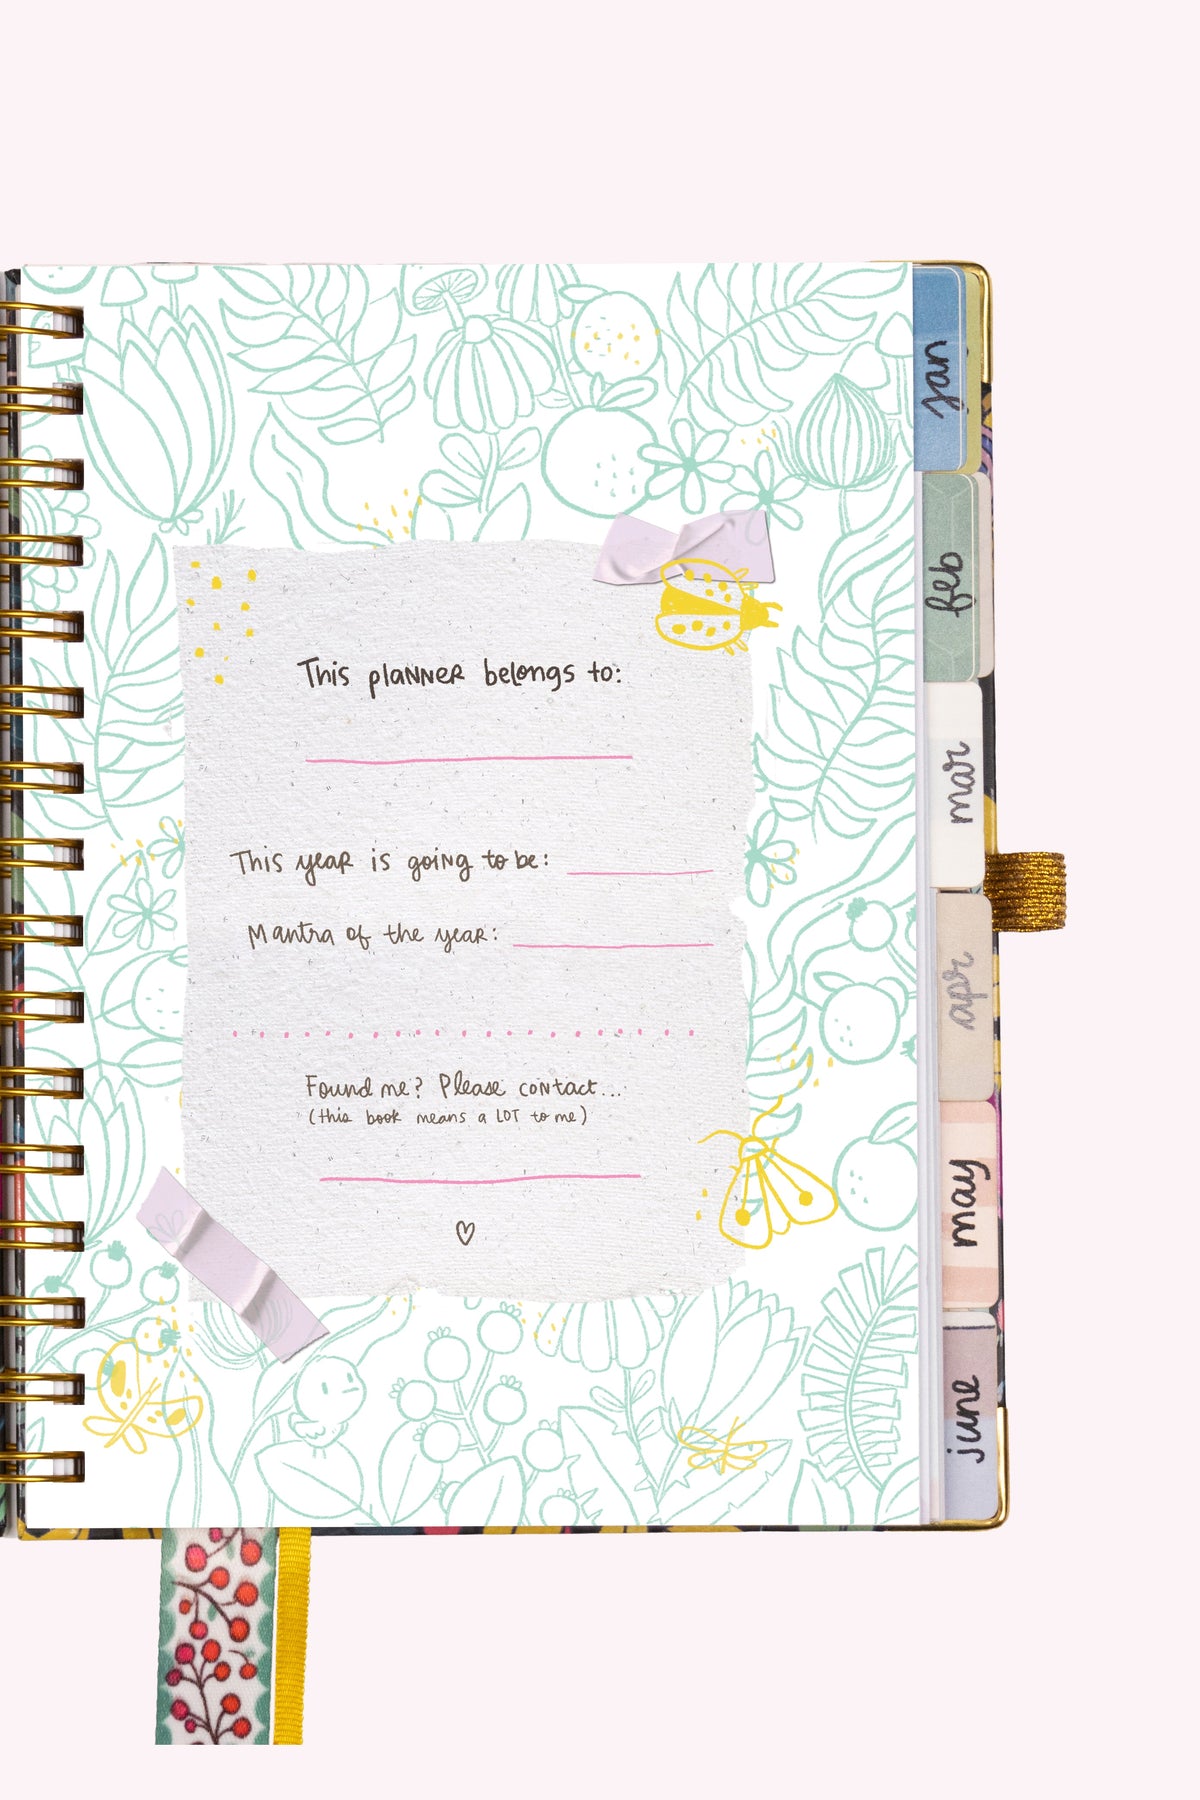 This planner belongs to:
This year is going to be:
Mantra of the year:
Found me? Please contact...
(this book means a LOT to me)
jan
feb
mar
apr
may
june